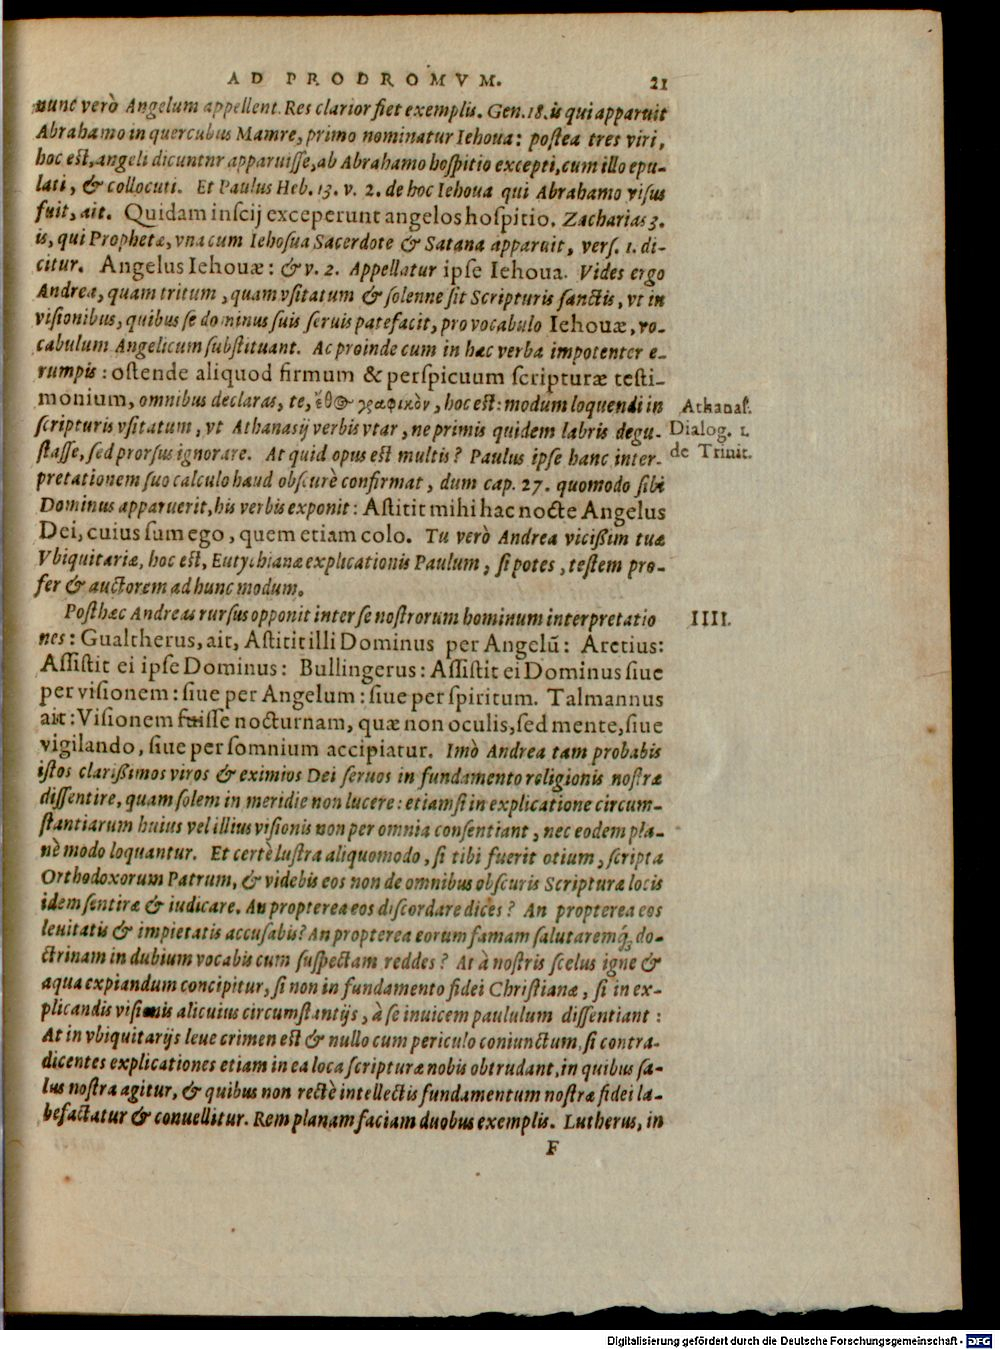 AD PRODROMVM. 21
nunc verò Angelum appellent. Res clarior fiet exemplis. Gen. 18. is qui apparuit
Abrahamo in quercubus Mamre, primo nominatur Iehoua: postea tres viri,
hoc est, angeli dicuntnr apparuisse, ab Abrahamo hospitio excepti, cum illo epu-
lati, & collocuti. Et Paulus Heb. 13. v. 2. de hoc Iehoua qui Abrahamo visus
fuit, ait. Quidam inscij exceperunt angelos hospitio. Zacharias 3.
is, qui Prophetæ, vna cum Iehosua Sacerdote & Satana apparuit, vers. 1. di-
citur. Angelus Iehouæ: & v. 2. Appellatur ipse Iehoua. Vides ergo
Andrea, quam tritum, quam vsitatum & solenne sit Scripturis sanctis, vt in
visionibus, quibus se dominus suis seruis patefacit, pro vocabulo Iehouæ, vo-
cabulum Angelicum substituant. Ac proinde cum in hæc verba impotenter e-
rumpis: ostende aliquod firmum & perspicuum scripturæ testi-
monium, omnibus declaras, te, ἔθος γραφικὸν, hoc est: modum loquendi in
scripturis vsitatum, vt Athanasij verbis vtar, ne primis quidem labris degu-
stasse, sed prorsus ignorare. At quid opus est multis? Paulus ipse hanc inter-
pretationem suo calculo haud obscurè confirmat, dum cap. 27. quomodo sibi
Dominus apparuerit, his verbis exponit: Astitit mihi hac nocte Angelus
Dei, cuius sum ego, quem etiam colo. Tu verò Andrea vicißim tuæ
Vbiquitariæ, hoc est, Eutychianæ explicationis Paulum, si potes, testem pro-
fer & auctorem ad hunc modum.
Athanas.
Dialog. 1.
de Trinit.
Posthæc Andreas rursus opponit inter se nostrorum hominum interpretatio
nes: Gualtherus, ait, Astitit illi Dominus per Angelũ: Aretius:
Assistit ei ipse Dominus: Bullingerus: Assistit ei Dominus siue
per visionem: siue per Angelum: siue per spiritum. Talmannus
ait: Visionem fuisse nocturnam, quæ non oculis, sed mente, siue
vigilando, siue per somnium accipiatur. Imò Andrea tam probabis
istos clarißimos viros & eximios Dei seruos in fundamento religionis nostræ
dissentire, quam solem in meridie non lucere: etiamsi in explicatione circum-
stantiarum huius vel illius visionis non per omnia consentiant, nec eodem pla-
nè modo loquantur. Et certè lustra aliquomodo, si tibi fuerit otium, scripta
Orthodoxorum Patrum, & videbis eos non de omnibus obscuris Scripturæ locis
idem sentiræ & iudicare. An propterea eos discordare dices? An propterea eos
leuitatis & impietatis accusabis? An propterea eorum famam salutaremq́; do-
ctrinam in dubium vocabis cum suspectam reddes? At à nostris scelus igne &
aqua expiandum concipitur, si non in fundamento fidei Christianæ, si in ex-
plicandis visionis alicuius circumstantijs, à se inuicem paululum dissentiant:
At in vbiquitarijs leue crimen est & nullo cum periculo coniunctum, si contra-
dicentes explicationes etiam in ea loca scripturæ nobis obtrudant, in quibus sa-
lus nostra agitur, & quibus non rectè intellectis fundamentum nostræ fidei la-
befactatur & conuellitur. Rem planam faciam duobus exemplis. Lutherus, in
IIII.
F
Digitalisierung gefördert durch die Deutsche Forschungsgemeinschaft - DFG